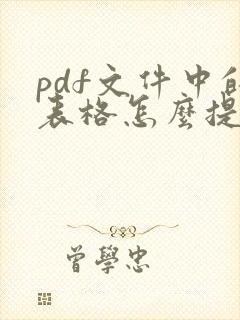 pdf文件中的
表格怎麼提
曾學忠